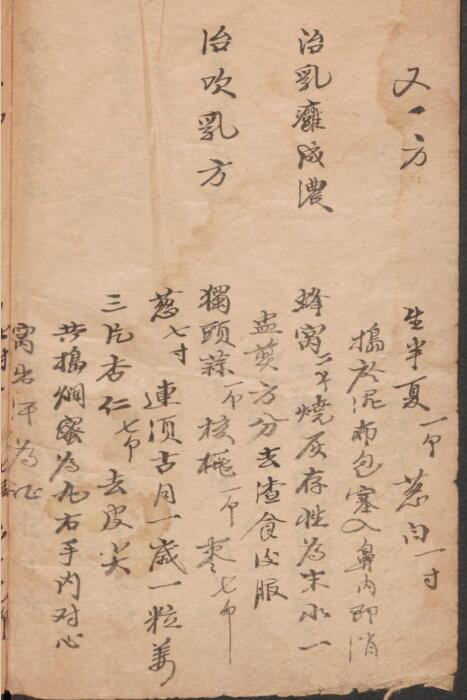 又一方
生半夏一个 葱白一寸
搗於泥布包塞入鼻內即消
治乳癰成濃
蜂窝二个燒灰存性為末水一
盅煎方分去渣食後服
治吹乳方
獨頭蒜一个核桃一个枣七个
葱七寸 連須古月一歲一粒姜
三片杏仁七个去皮尖
共搗爛蜜為丸右手內对心
窩出汗為止